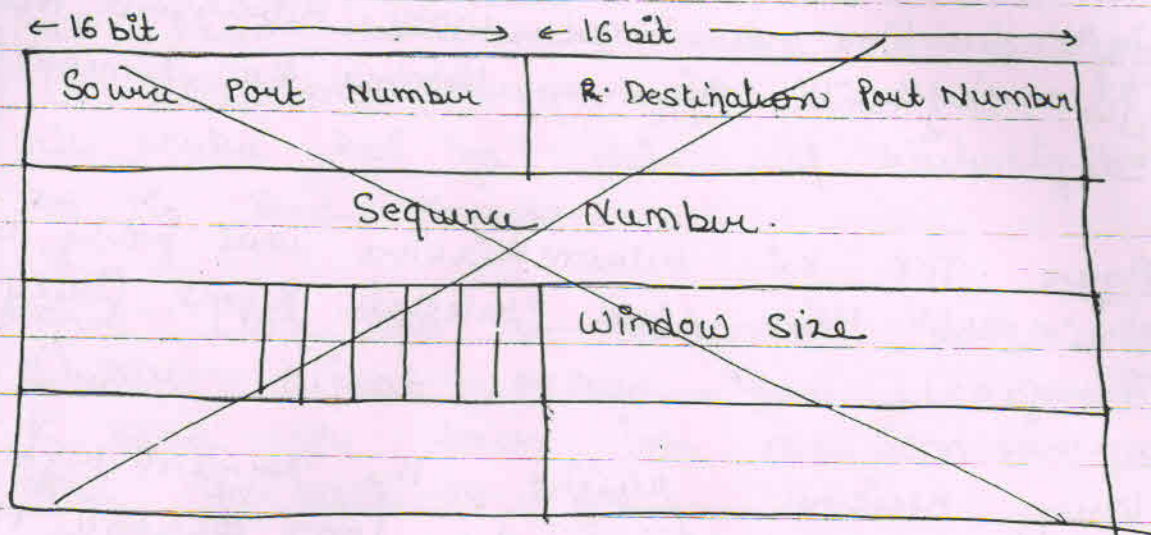 ← 16 bit → ← 16 bit →
Source Port Number R. Destination Port Number
Sequence Number.
Window Size